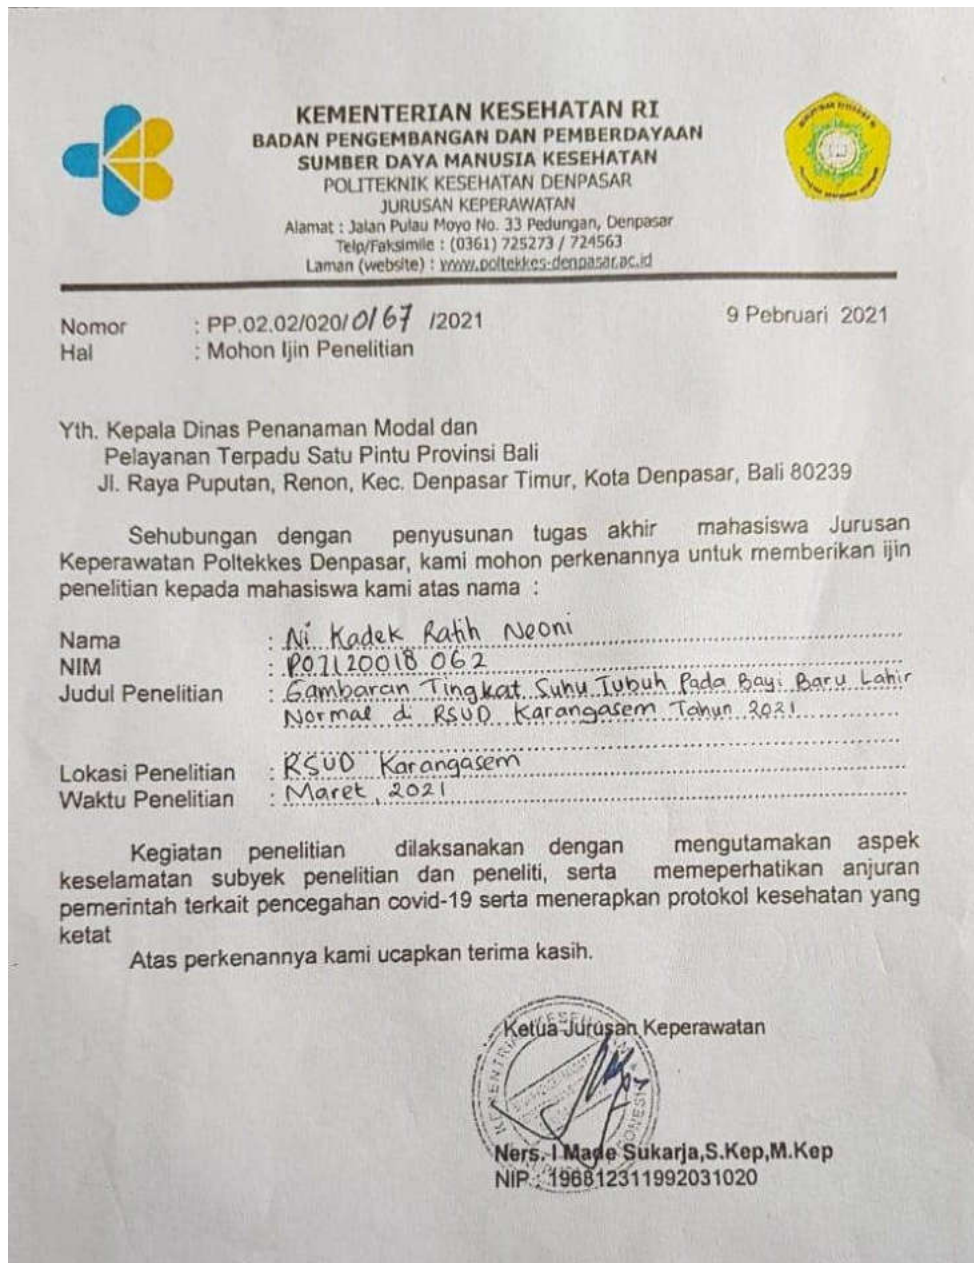 KEMENTERIAN KESEHATAN RI
BADAN PENGEMBANGAN DAN PEMBERDAYAAN
SUMBER DAYA MANUSIA KESEHATAN
POLITEKNIK KESEHATAN DENPASAR
JURUSAN KEPERAWATAN
Alamat : Jalan Pulau Moyo No. 33 Pedungan, Denpasar
Telp/Faksimile : (0361) 725273 / 724563
Laman (website) : www.poltekkes-denpasar.ac.id
Nomor : PP.02.02/020/0167 /2021 9 Pebruari 2021
Hal : Mohon Ijin Penelitian
Yth. Kepala Dinas Penanaman Modal dan
Pelayanan Terpadu Satu Pintu Provinsi Bali
Jl. Raya Puputan, Renon, Kec. Denpasar Timur, Kota Denpasar, Bali 80239
Sehubungan dengan penyusunan tugas akhir mahasiswa Jurusan
Keperawatan Poltekkes Denpasar, kami mohon perkenannya untuk memberikan ijin
penelitian kepada mahasiswa kami atas nama :
Nama : Ni Kadek Ratih Neoni
NIM : P07120018 062
Judul Penelitian : Gambaran Tingkat Suhu Tubuh Pada Bayi Baru Lahir
Normal di RSUD Karangasem Tahun 2021
Lokasi Penelitian : RSUD Karangasem
Waktu Penelitian : Maret, 2021
Kegiatan penelitian dilaksanakan dengan mengutamakan aspek
keselamatan subyek penelitian dan peneliti, serta memeperhatikan anjuran
pemerintah terkait pencegahan covid-19 serta menerapkan protokol kesehatan yang
ketat
Atas perkenannya kami ucapkan terima kasih.
Ketua Jurusan Keperawatan
Ners. I Made Sukarja,S.Kep,M.Kep
NIP : 196812311992031020